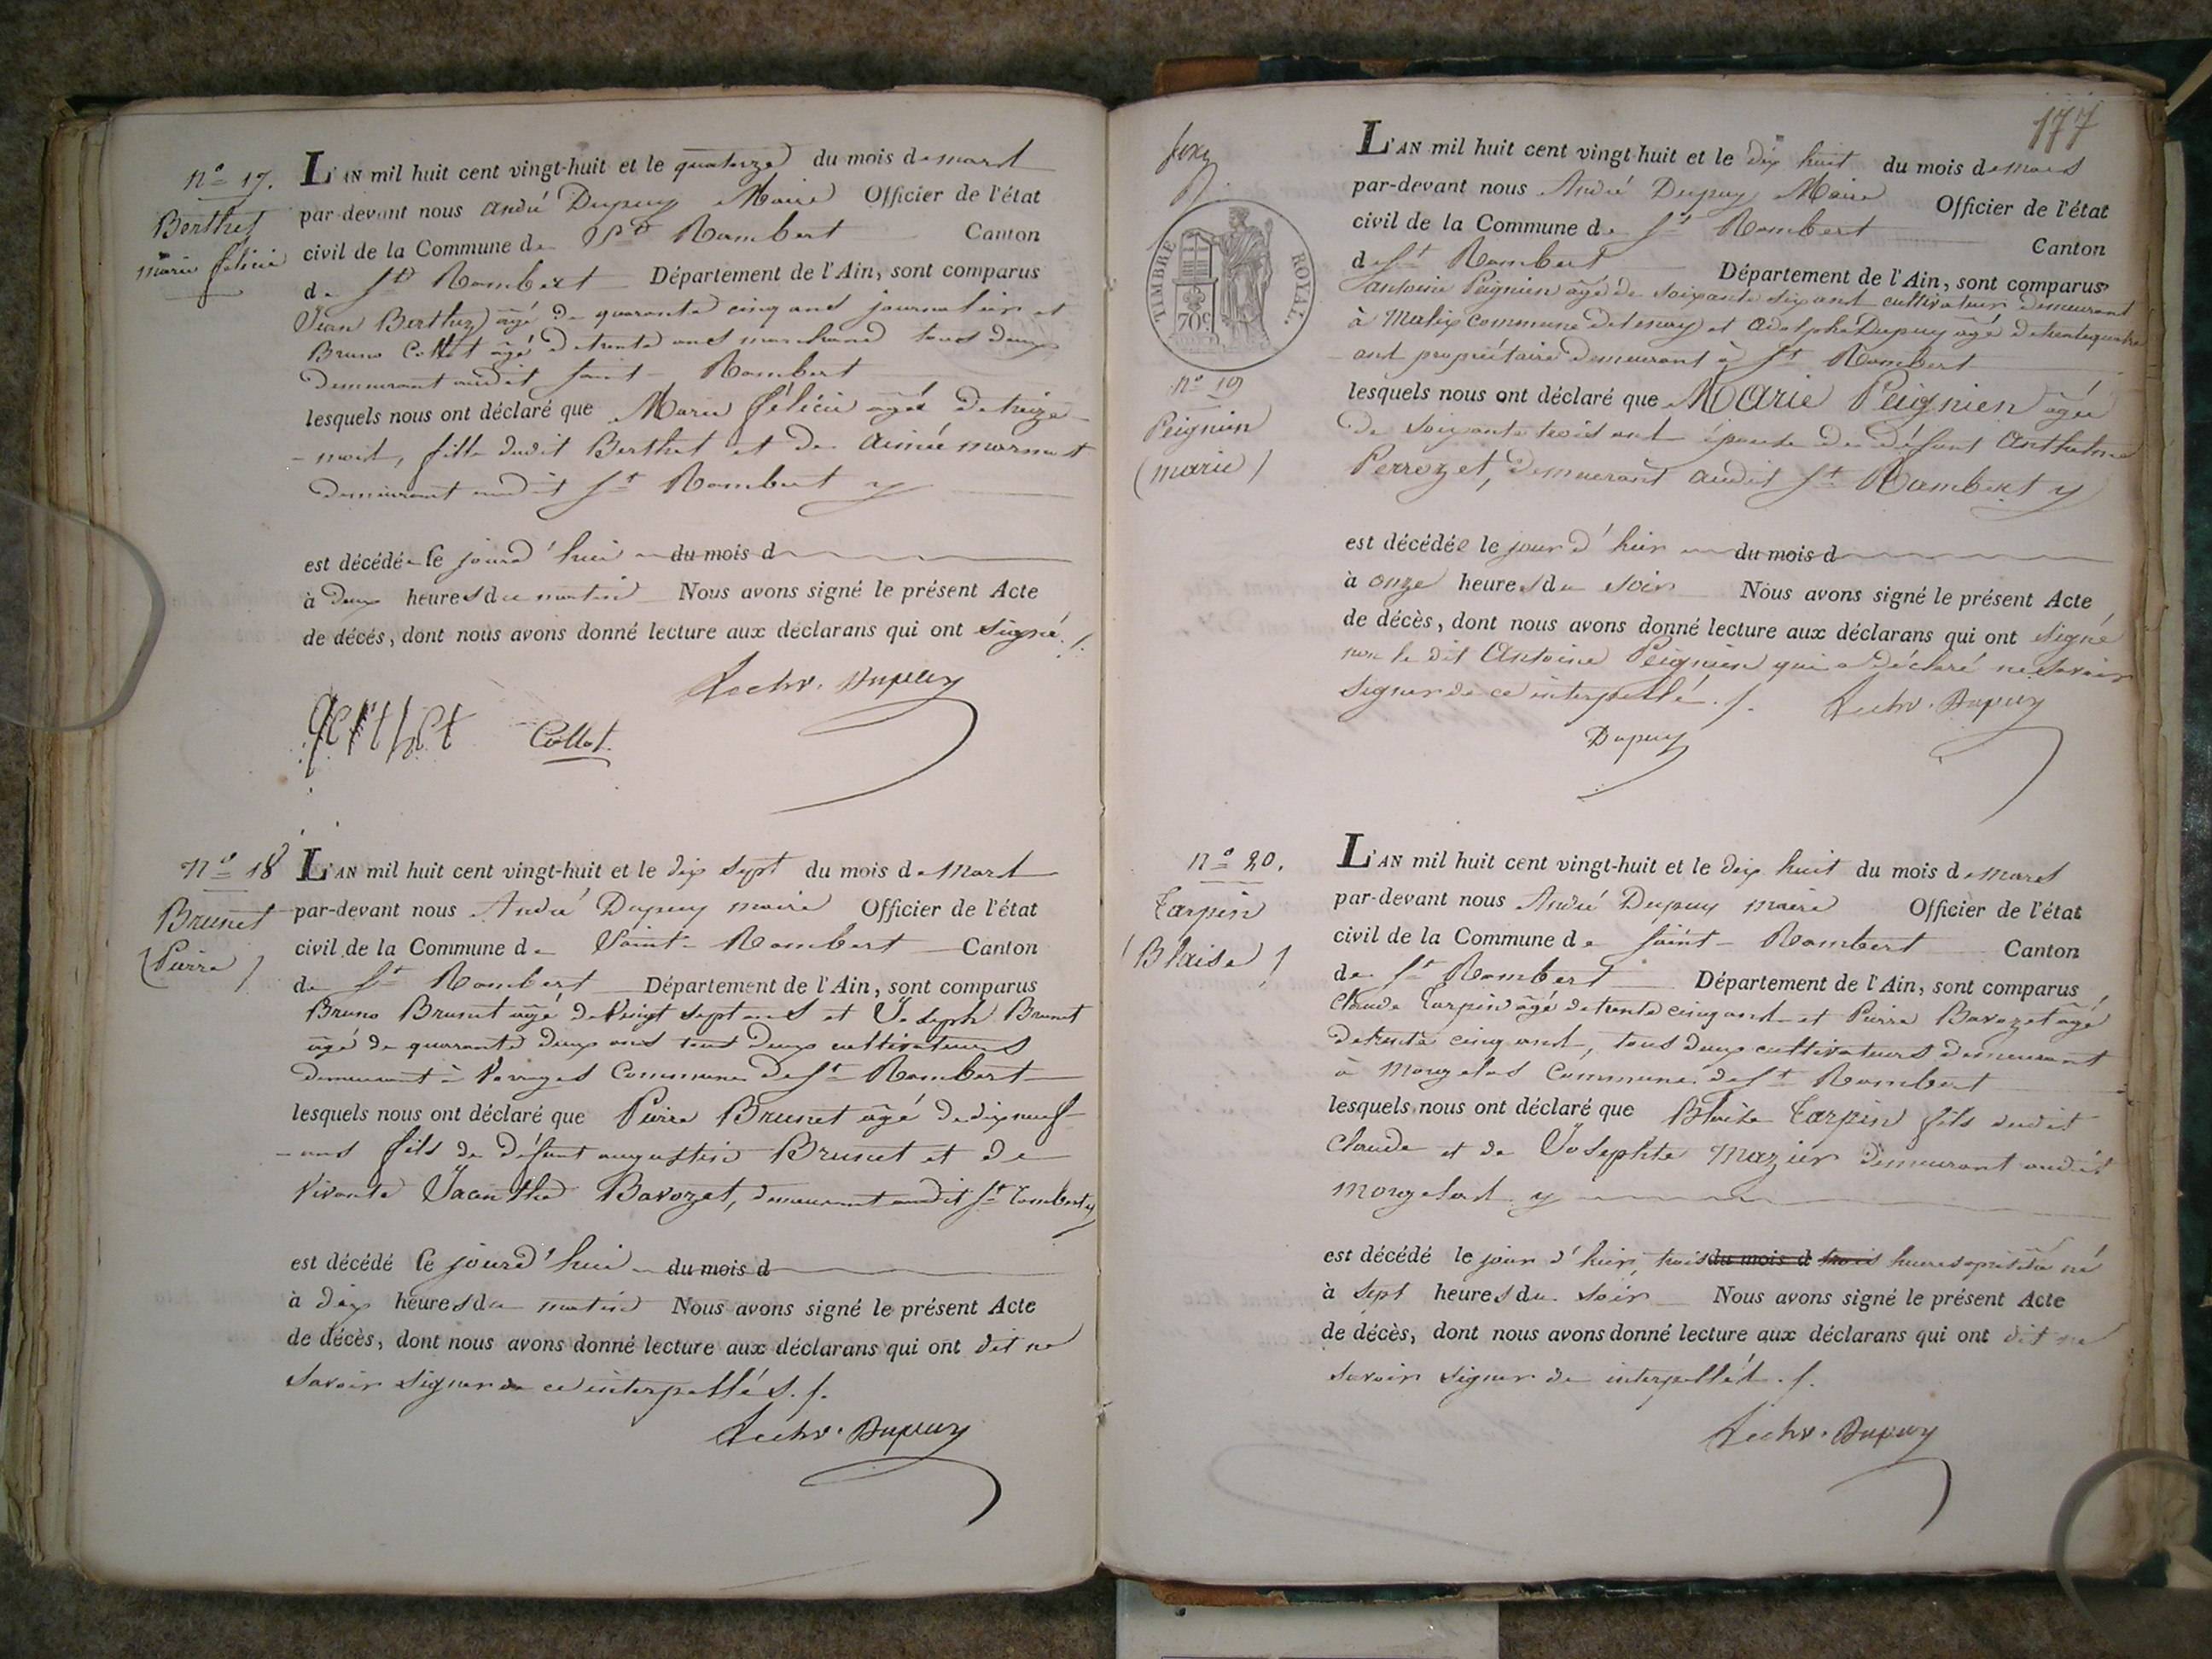 nº 17.
Berthet
marie félicie
L'AN mil huit cent vingt-huit et le quatorze du mois de mars
par-devant nous andré Dupuy Maire Officier de l'état
civil de la Commune de St Rambert Canton
de St Rambert Département de l'Ain, sont comparus
Jean Berthet âgé de quarante cinq ans journalier et
Bruno Collot âgé de trente ans marchand tous deux
demeurant audit saint-Rambert
lesquels nous ont déclaré que Marie félicie âgée de treize
mois, fille dudit Berthet et de aimée
demeurant audit St Rambert
est décédée le jourd'hui du mois d
à deux heures du matin Nous avons signé le présent Acte
de décès, dont nous avons donné lecture aux déclarans qui ont signé ./.
Dupuy
Berthet Collot
nº 18
Brunet
(Pierre)
L'AN mil huit cent vingt-huit et le dix sept du mois de Mars
par-devant nous André Dupuy maire Officier de l'état
civil de la Commune de Saint-Rambert Canton
de St Rambert Département de l'Ain, sont comparus
Bruno Brunet âgé de vingt sept ans et Joseph Brunet
âgé de quarante deux ans tous deux cultivateurs
demeurant à Commune de St Rambert
lesquels nous ont déclaré que Pierre Brunet âgé de dix neuf
ans fils de défunt augustin Brunet et de
vivante Jacinthe Bavozet, demeurant audit St Rambert
est décédé le jourd'hui du mois d
à dix heures du matin Nous avons signé le présent Acte
de décès, dont nous avons donné lecture aux déclarans qui ont dit ne
savoir signer de ce interpellés ./.
Dupuy
177
TIMBRE ROYAL.
70c
nº 19
Peignien
(marie)
L'AN mil huit cent vingt-huit et le dix huit du mois de mars
par-devant nous André Dupuy Maire Officier de l'état
civil de la Commune de St Rambert Canton
de St Rambert Département de l'Ain, sont comparus
antoine Peignien âgé de soixante six ans cultivateur demeurant
à Malix commune de tenay et Adolphe Dupuy âgé de trente quatre
ans propriétaire demeurant à St Rambert
lesquels nous ont déclaré que Marie Peignien âgée
de soixante trois ans épouse de défunt Anthelme
Perrozet, demeurant audit St Rambert
est décédée le jour d'hier du mois d
à onze heures du soir Nous avons signé le présent Acte
de décès, dont nous avons donné lecture aux déclarans qui ont signé
non le dit Antoine Peignien qui a déclaré ne savoir
signer de ce interpellé ./. Dupuy
Dupuy
nº 20.
Tarpin
(Blaise)
L'AN mil huit cent vingt-huit et le dix huit du mois de mars
par-devant nous André Dupuy maire Officier de l'état
civil de la Commune de saint-Rambert Canton
de St Rambert Département de l'Ain, sont comparus
Claude Tarpin âgé de trente cinq ans et Pierre Bavozet âgé
de trente cinq ans, tous deux cultivateurs demeurant
à Morgelas Commune de St Rambert
lesquels nous ont déclaré que Blaise Tarpin fils dudit
Claude et de Josephte Mazuir demeurant audit
Morgelas
est décédé le jour d'hier, trois du mois d trois heures après être né
à sept heures du soir Nous avons signé le présent Acte
de décès, dont nous avons donné lecture aux déclarans qui ont dit ne
savoir signer de interpellés ./.
Dupuy